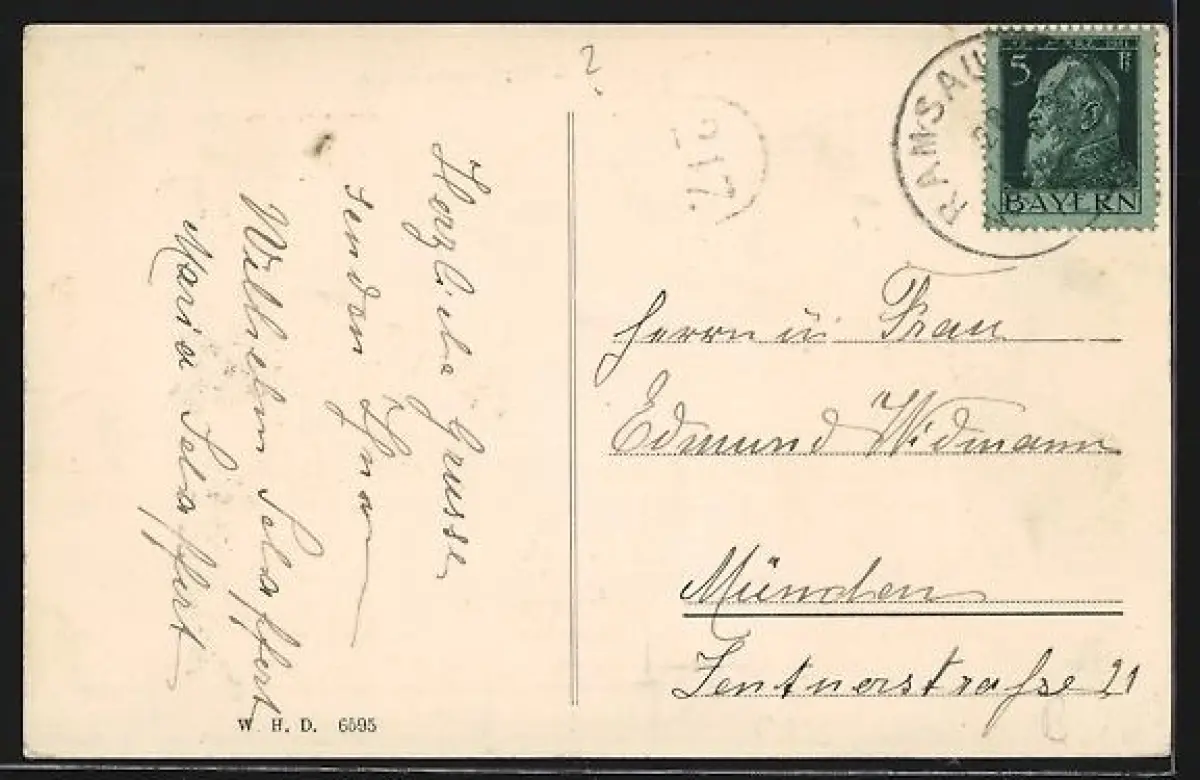 2.
Herzliche Grusse
senden Ihnen
Wilhelm Schaffert
Maria Schaffert
W. H. D. 6595
217.
RAMSAU
5 Pf
BAYERN
Herrn u Frau
Edmund Widmann
München
Zentnerstraße 21